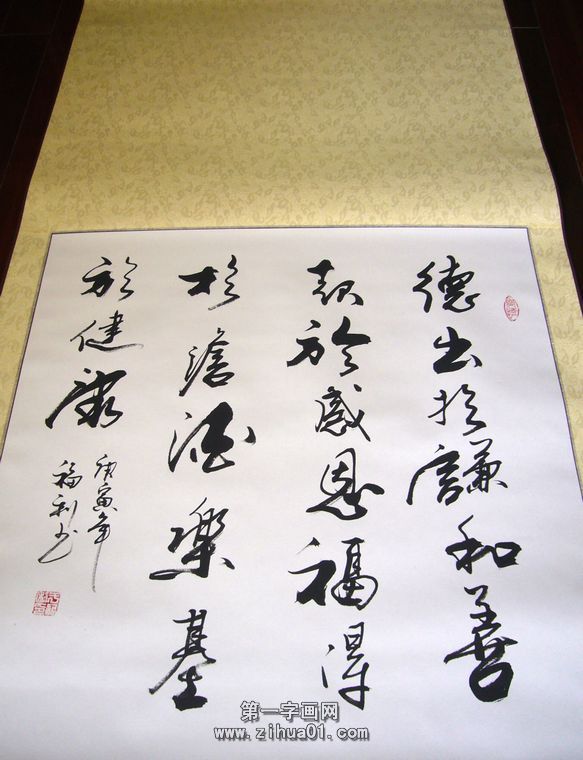 德出於謙和善
起於感恩福得
於澹泊樂基
於健康
庚寅年
福利书
第一字画网
www.zihua01.com